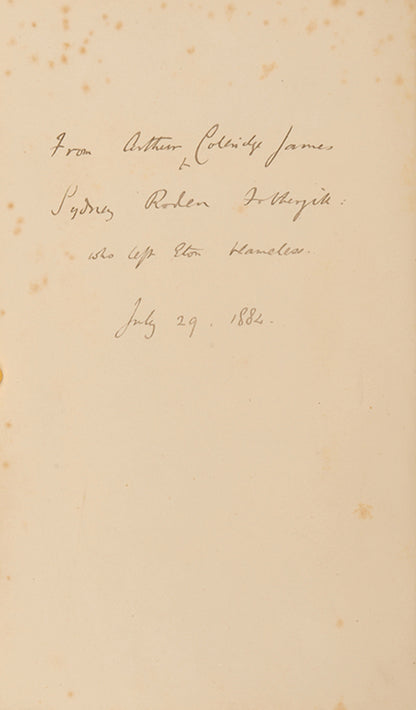 From Arthur Coleridge James
to
Sydney Roden Fothergill:
who left Eton blameless.
July 29. 1884.